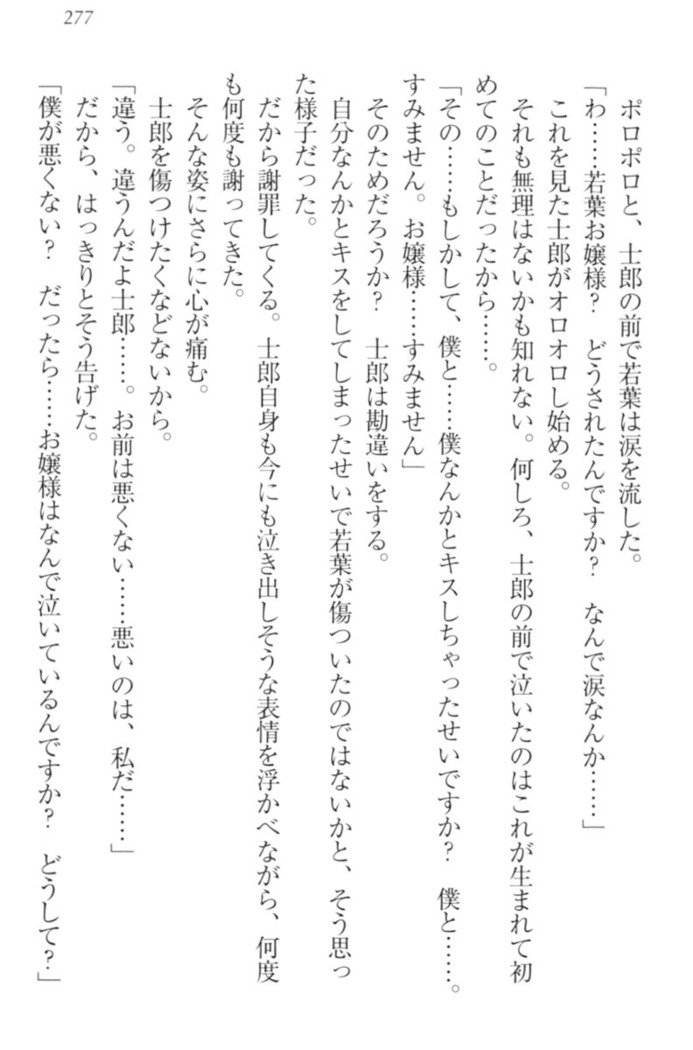 277
ポロポロと、士郎の前で若葉は涙を流した。
「わ……若葉お嬢様？　どうされたんですか？　なんで涙なんか……」
これを見た士郎がオロオロし始める。
それも無理はないかも知れない。何しろ、士郎の前で泣いたのはこれが生まれて初
めてのことだったから……。
「その……もしかして、僕と……僕なんかとキスしちゃったせいですか？　僕と……。
すみません。お嬢様……すみません」
そのためだろうか？　士郎は勘違いをする。
自分なんかとキスをしてしまったせいで若葉が傷ついたのではないかと、そう思っ
た様子だった。
だから謝罪してくる。士郎自身も今にも泣き出しそうな表情を浮かべながら、何度
も何度も謝ってきた。
そんな姿にさらに心が痛む。
士郎を傷つけたくなどないから。
「違う。違うんだよ士郎……。お前は悪くない……悪いのは、私だ……」
だから、はっきりとそう告げた。
「僕が悪くない？　だったら……お嬢様はなんで泣いているんですか？　どうして？」